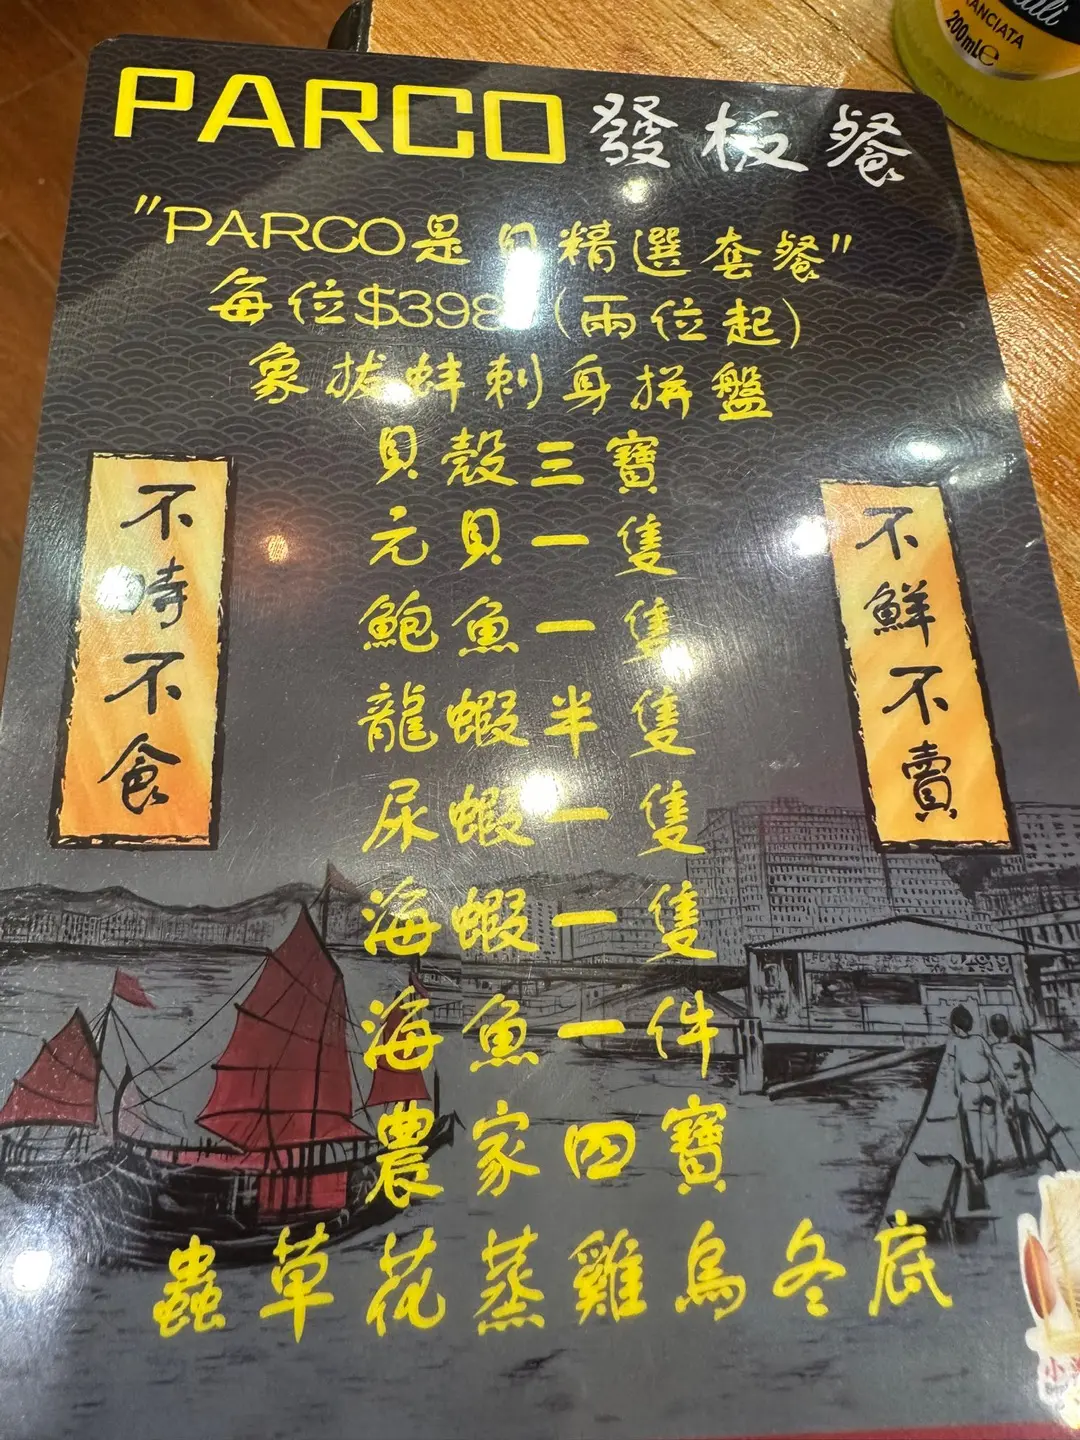 PARCO 發板餐
"PARCO是貝精選套餐"
每位$398 (兩位起)
象拔蚌刺身拼盤
貝殼三寶
元貝一隻
鮑魚一隻
龍蝦半隻
尿蝦一隻
海蝦一隻
海魚一件
農家四寶
蟲草花蒸雞烏冬底
不時不食
不鮮不賣
ANCIATA
200mLe
小